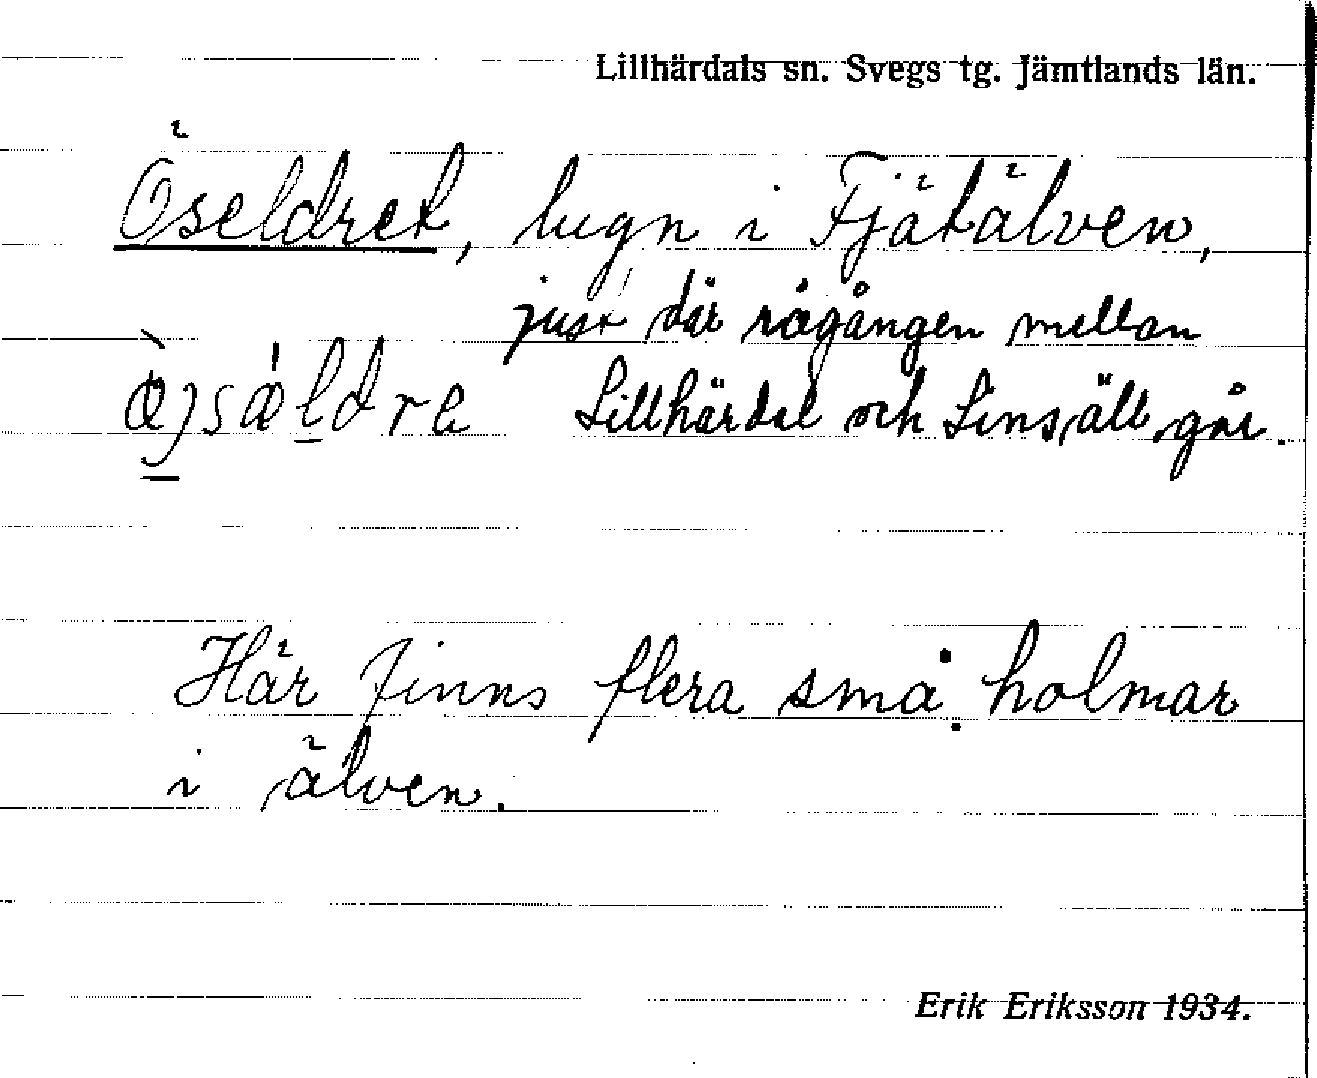 Lillhärdals sn. Svegs tg. Jämtlands län.
Öseldret, lugn i Fjätälven,
just där rågången mellan
Lillhärdal och Linsäll går.
Här finns flera små holmar
i älven.
Erik Eriksson 1934.